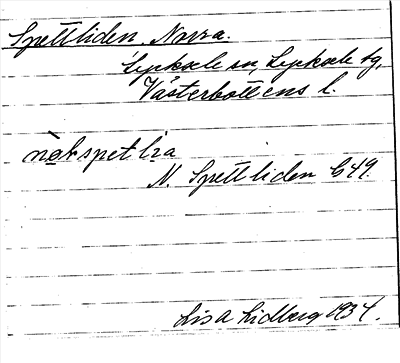 Spettliden, Norra.
Lycksele sn, Lycksele tg,
Västerbottens l.
nọkspetlɩa
N. Spettliden G49.
Lisa Lidberg 1934.